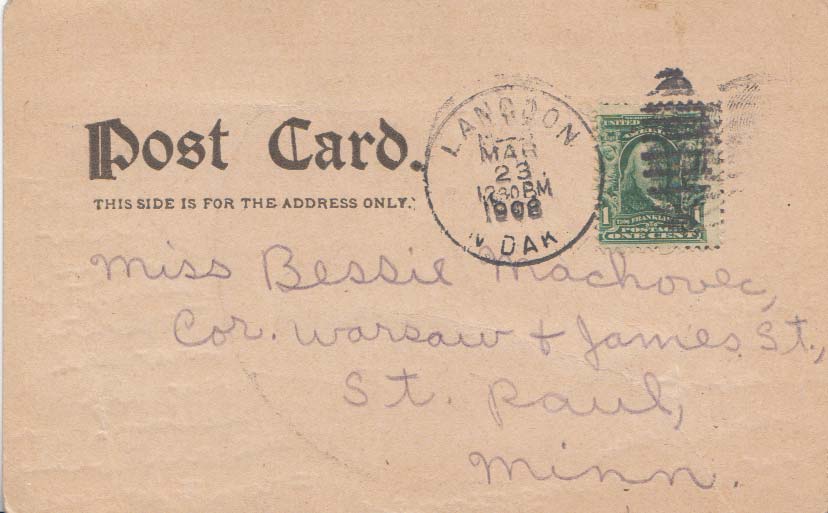 Post Card.
THIS SIDE IS FOR THE ADDRESS ONLY.
LANGDON
MAR
23
1908
N. DAK.
UNITED
1 FRANKLIN 1
POSTAGE
ONE CENT
Miss Bessie Machovec,
Cor. Warsaw + James St.,
St. Paul,
Minn.